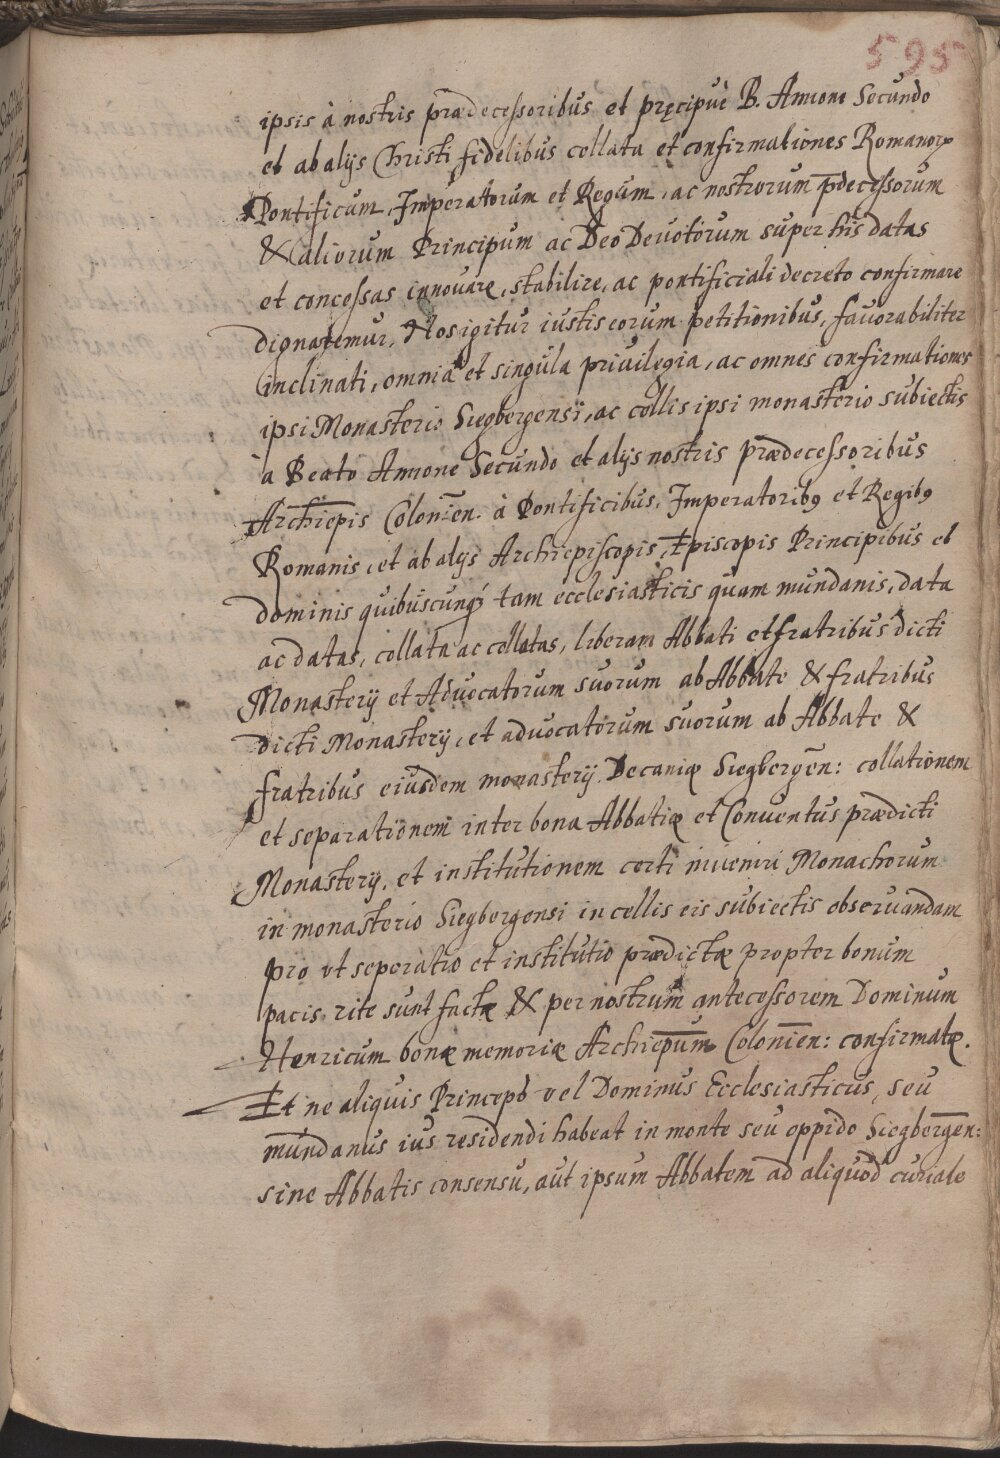 595
ipsis à nostris prædecessoribus et pręcipuè B. Annone Secundo
et ab alijs Christi fidelibus collata et confirmationes Romanorꝝ
Pontificum, Imperatorum et Regum, ac nostrorum p̄decessorum
& aliorum Principum ac Deo Deuotorum super his datas
et concessas innouare, stabilire, ac pontificiali decreto confirmare
dignaremur, Nos igitur iustis eorum petitionibus, fauorabiliter
inclinati, omnia et singula priuilegia, ac omnes confirmationes
ipsi Monasterio Siegbergensi, ac collis ipsi monasterio subiectis
à Beato Annone Secundo et alijs nostris prædecessoribus
Archiēpis Coloniēn. à Pontificibus, Imperatoribꝰ et Regibꝰ
Romanis, et ab alijs Archiepiscopis, Episcopis Principibus et
dominis quibuscunqꝫ tam ecclesiasticis quam mundanis, data
ac datas, collata ac collatas, liberam Abbati et fratribus dicti
Monasterij et Aduocatorum suorum ab Abbate & fratribus
dicti Monasterij, et aduocatorum suorum ab Abbate &
fratribus eiusdem monasterij Decaniæ Siegbergēn: collationem
et separationem inter bona Abbatiæ et Conuentus prædicti
Monasterij, et institutionem certi numeri Monachorum
in monasterio Siegbergensi in cellis eis subiectis obseruandam
pro vt seperatio et institutio prædictæ propter bonum
pacis rite sunt factæ & per nostrum antecessorem Dominum
Henricum bonæ memoriæ Archiep̄um Coloniēn: confirmatæ.
Et ne aliquis Princeps vel Dominus Ecclesiasticus, seu
mundanus ius residendi habeat in monte seu oppido Siegbergēn:
sine Abbatis consensu, aut ipsum Abbatem ad aliquod curiale